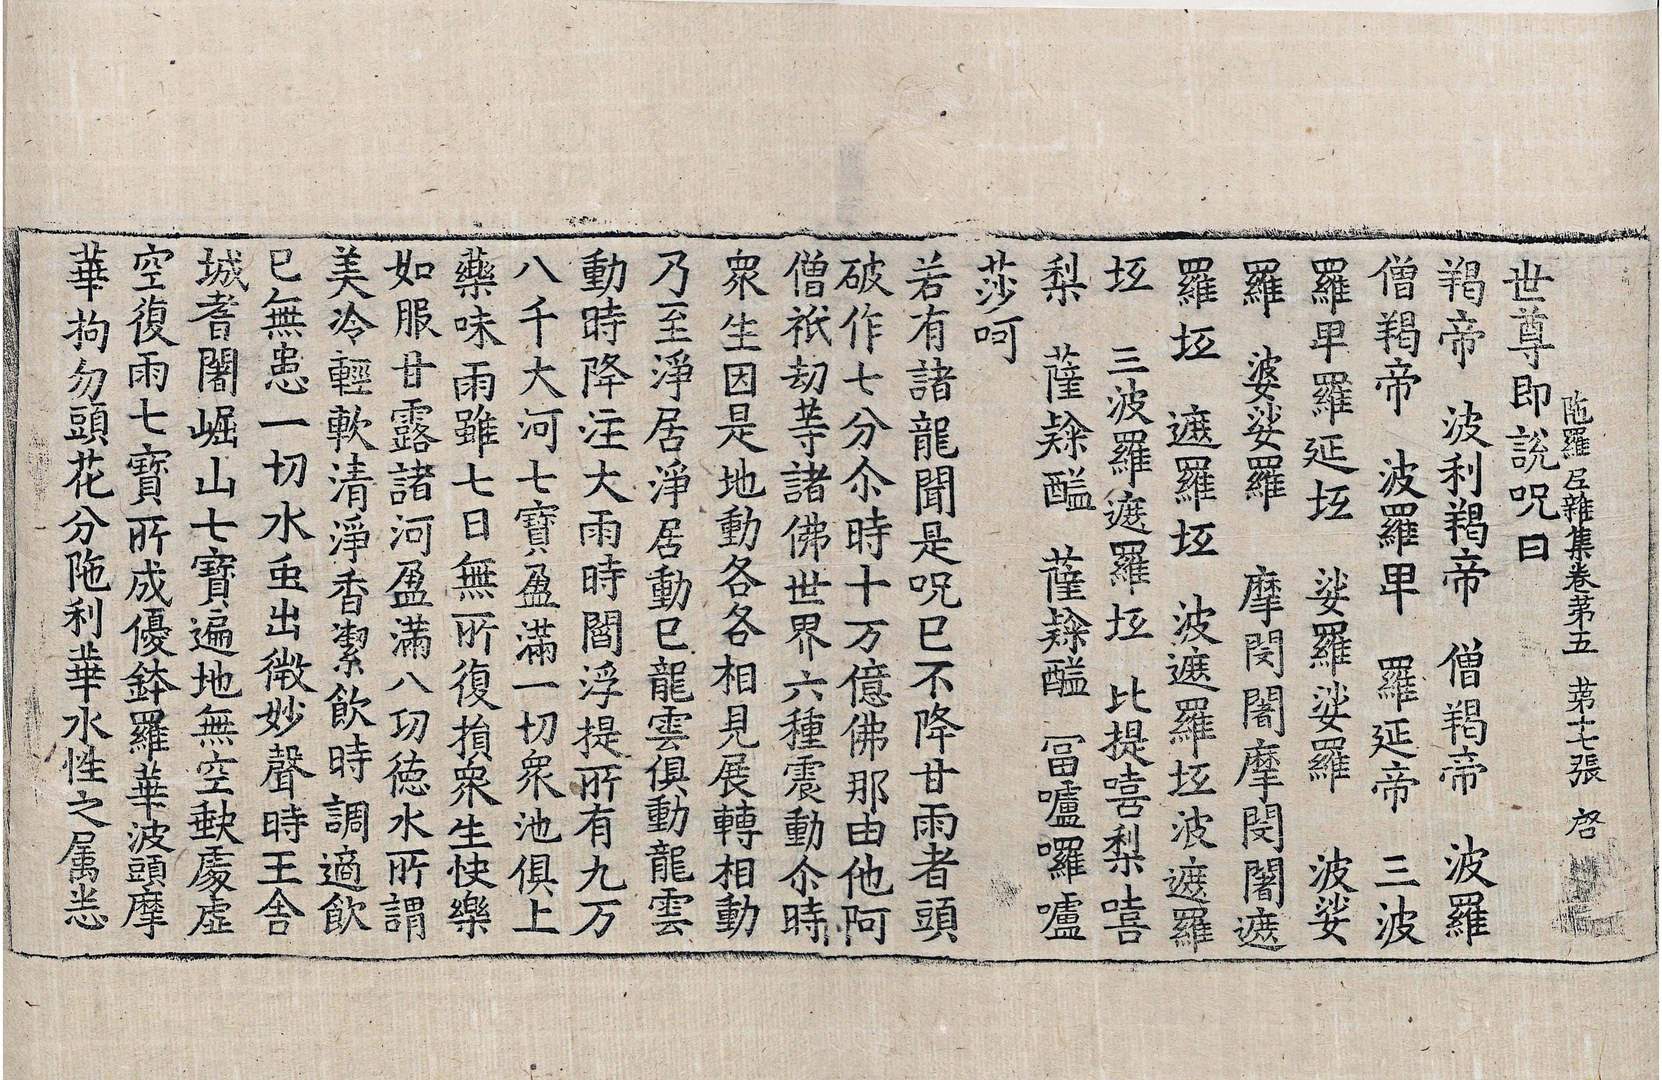 陁羅尼雜集卷第五 第十七張 啓
世尊即說呪曰
羯帝 波利羯帝 僧羯帝 波羅
僧羯帝 波羅卑 羅延帝 三波
羅卑羅延坘 娑羅娑羅 波娑
羅 婆娑羅 摩閔闍摩閔闍遮
羅坘 遮羅坘 波遮羅坘波遮羅
坘 三波羅遮羅坘 比提嘻梨嘻
梨 薩醯 薩醯 富嚧囉嚧
莎呵
若有諸龍聞是呪巳不降甘雨者頭
破作七分尒時十万億佛那由他阿
僧祇劫等諸佛世界六種震動尒時
衆生因是地動各各相見展轉相動
乃至淨居淨居動巳龍雲俱動龍雲
動時降注大雨時閻浮提所有九万
八千大河七寶盈滿一切衆池俱上
藥味雨雖七日無所復損衆生快樂
如服甘露諸河盈滿八功徳水所謂
美冷輕軟清淨香潔飲時調適飲
巳無患一切水虫出微妙聲時王舍
城耆闍崛山七寶遍地無空缺處虛
空復雨七寶所成優鉢羅華波頭摩
華拘勿頭花分陁利華水性之属悉